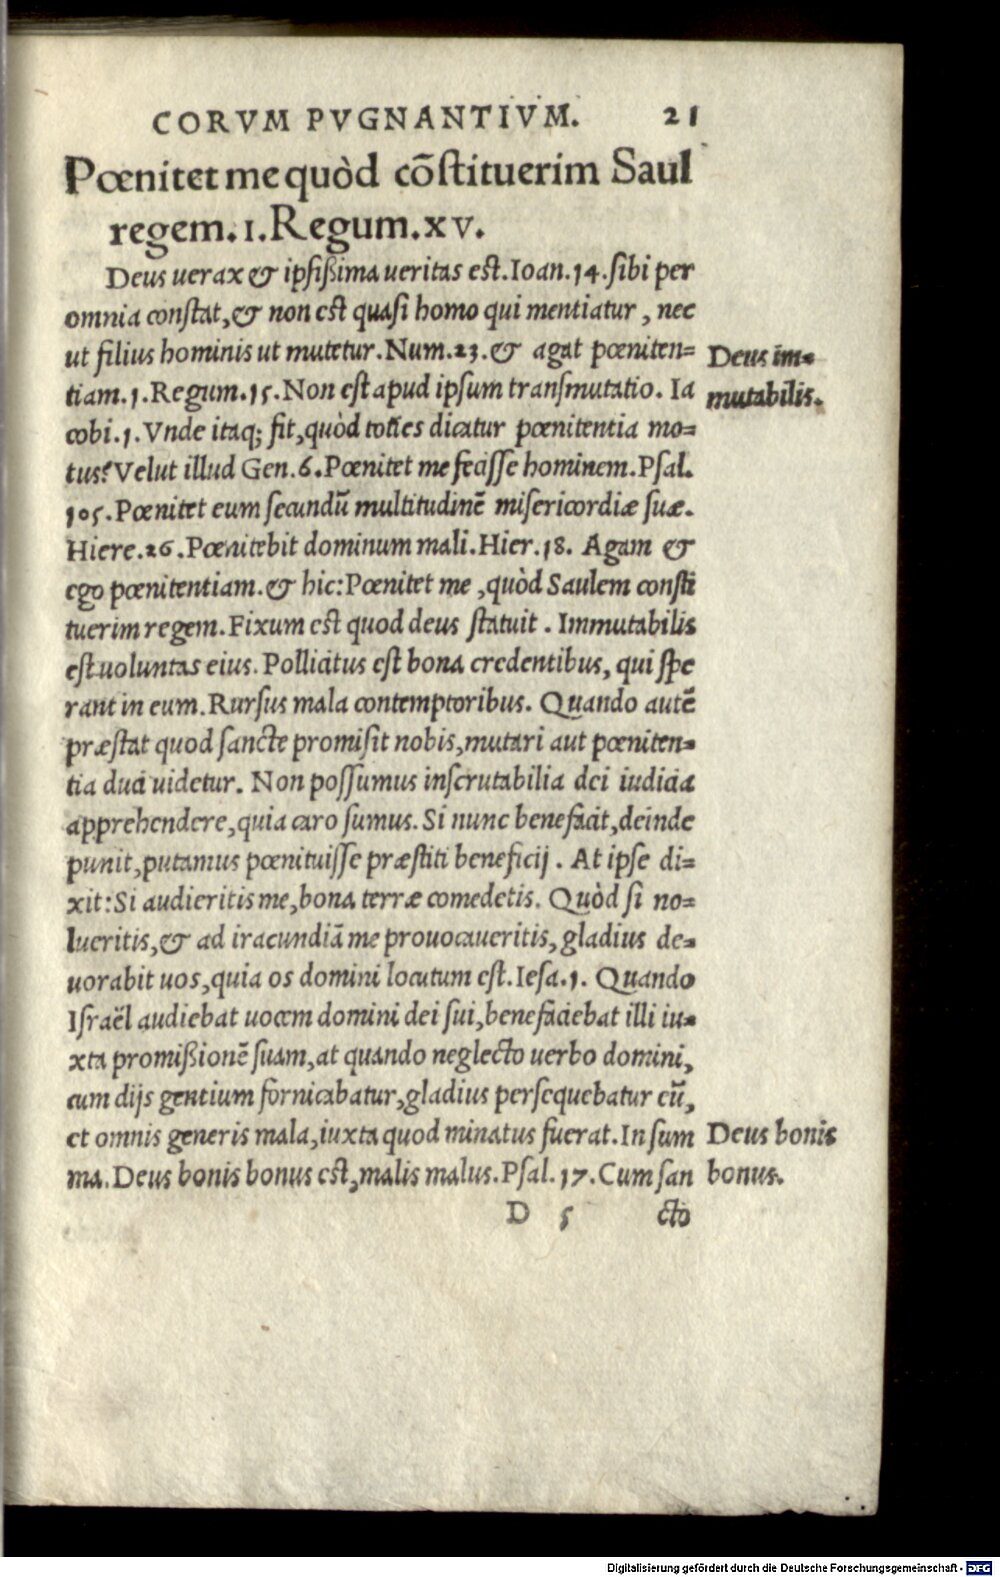 CORVM PVGNANTIVM. 21
Pœnitet me quòd cōstituerim Saul
regem. 1. Regum. xv.
Deus uerax & ipsißima ueritas est. Ioan. 14. sibi per
omnia constat, & non est quasi homo qui mentiatur, nec
ut filius hominis ut mutetur. Num. 23. & agat pœniten=
tiam. 1. Regum. 15. Non est apud ipsum transmutatio. Ia
cobi. 1. Vnde itaq; fit, quòd toties dicatur pœnitentia mo=
tus? Velut illud Gen. 6. Pœnitet me fecisse hominem. Psal.
105. Pœnitet eum secundū multitudinē misericordiæ suæ.
Hiere. 26. Pœnitebit dominum mali. Hier. 18. Agam &
ego pœnitentiam. & hic: Pœnitet me, quòd Saulem consti
tuerim regem. Fixum est quod deus statuit. Immutabilis
est uoluntas eius. Pollicitus est bona credentibus, qui spe
rant in eum. Rursus mala contemptoribus. Quando autē
præstat quod sancte promisit nobis, mutari aut pœniten=
tia duci uidetur. Non possumus inscrutabilia dei iudicia
apprehendere, quia caro sumus. Si nunc benefacit, deinde
punit, putamus pœnituisse præstiti beneficij. At ipse di=
xit: Si audieritis me, bona terræ comedetis. Quòd si no=
lueritis, & ad iracundiā me prouocaueritis, gladius de=
uorabit uos, quia os domini locutum est. Iesa. 1. Quando
Israël audiebat uocem domini dei sui, benefaciebat illi iu=
xta promißionē suam, at quando neglecto uerbo domini,
cum dijs gentium fornicabatur, gladius persequebatur eū,
et omnis generis mala, iuxta quod minatus fuerat. In sum
ma. Deus bonis bonus est, malis malus. Psal. 17. Cum san
D 5 cto
Deus im=
mutabilis.
Deus bonis
bonus.
Digitalisierung gefördert durch die Deutsche Forschungsgemeinschaft - DFG